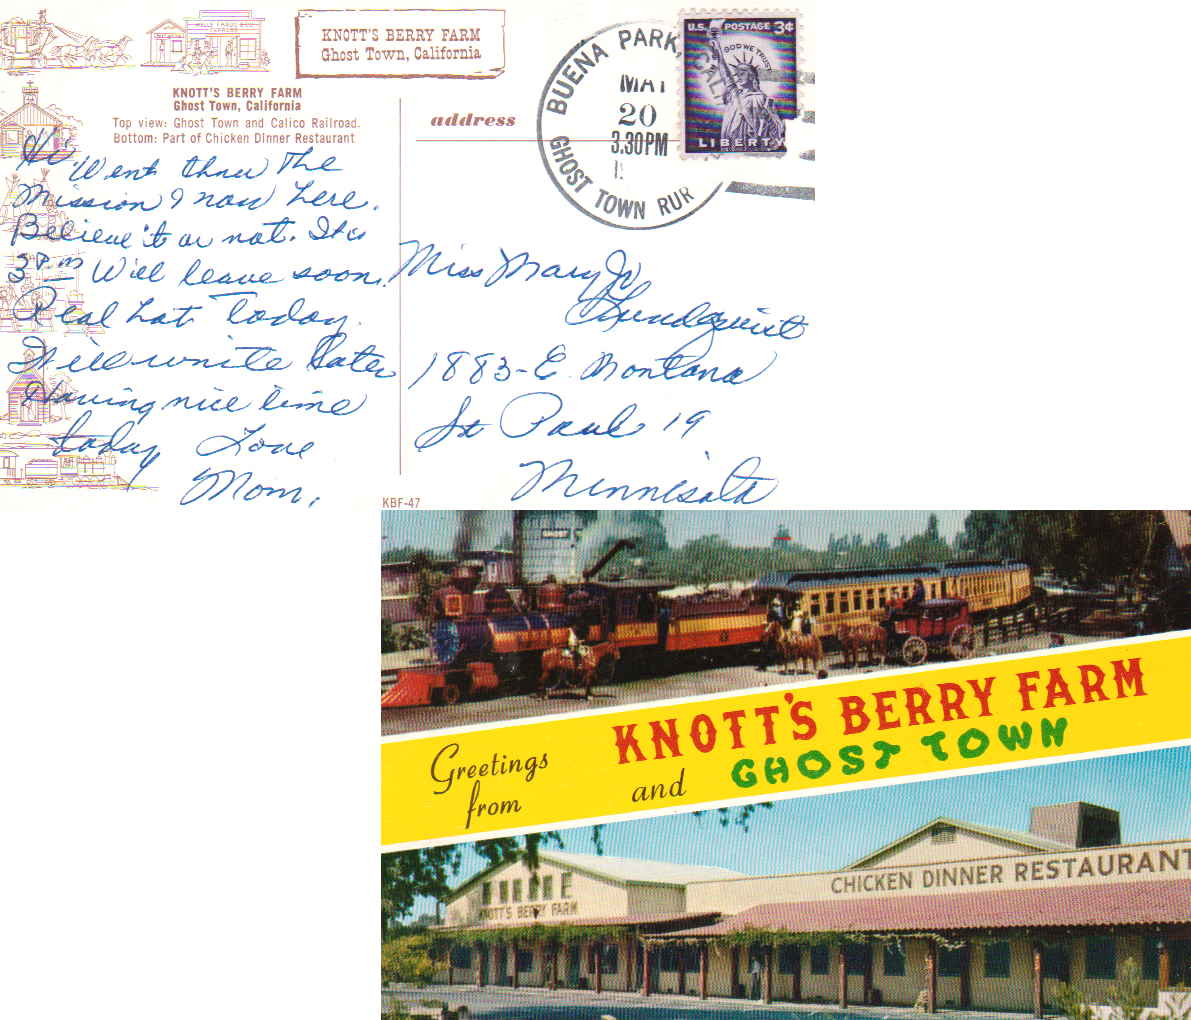 WELLS FARGO &
EXPRESS
KNOTT'S BERRY FARM
Ghost Town, California
KNOTT'S BERRY FARM
Ghost Town, California
Top view: Ghost Town and Calico Railroad.
Bottom: Part of Chicken Dinner Restaurant
address
BUENA PARK, CALIF
MAY
20
3.30PM
GHOST TOWN RUR
U.S. POSTAGE 3¢
IN GOD WE TRUST
LIBERTY
Hi
Went thru The
Mission & now here.
Believe 't or not. It is
3 P.m Will leave soon.
Real hot Today.
Will write later
Having nice time
today Love
Mom.
Miss Mary Jo
Lundquist
1883-E Montana
St Paul 19
Minnesota
KBF-47
GHOST
Greetings
from
KNOTT'S BERRY FARM
and GHOST TOWN
KNOTT'S BERRY FARM
CHICKEN DINNER RESTAURANT